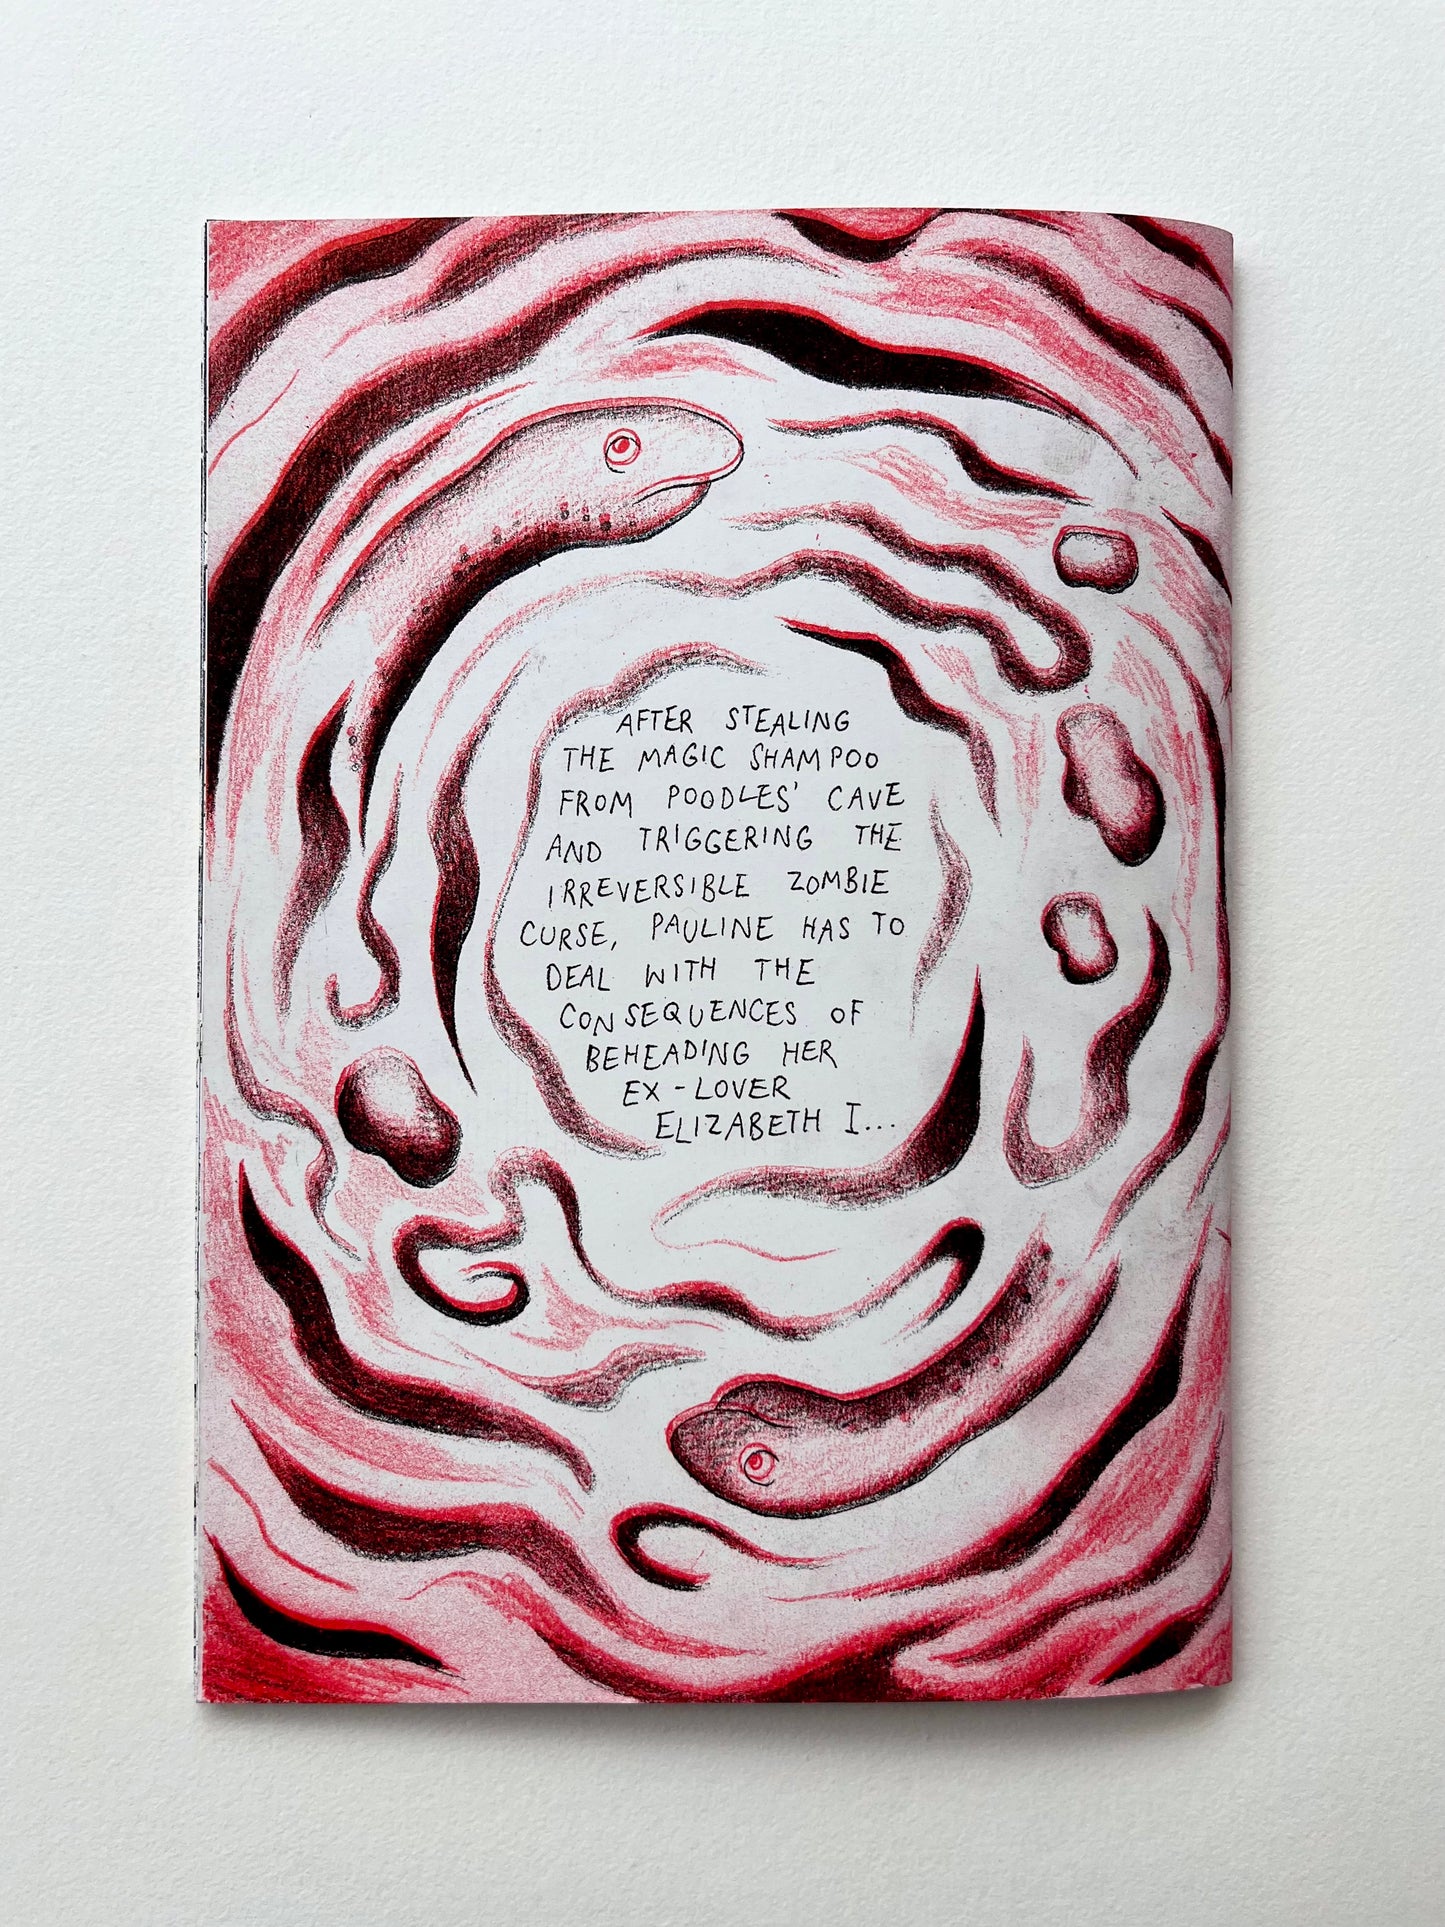 AFTER STEALING
THE MAGIC SHAMPOO
FROM POODLES' CAVE
AND TRIGGERING THE
IRREVERSIBLE ZOMBIE
CURSE, PAULINE HAS TO
DEAL WITH THE
CONSEQUENCES OF
BEHEADING HER
EX-LOVER
ELIZABETH I...